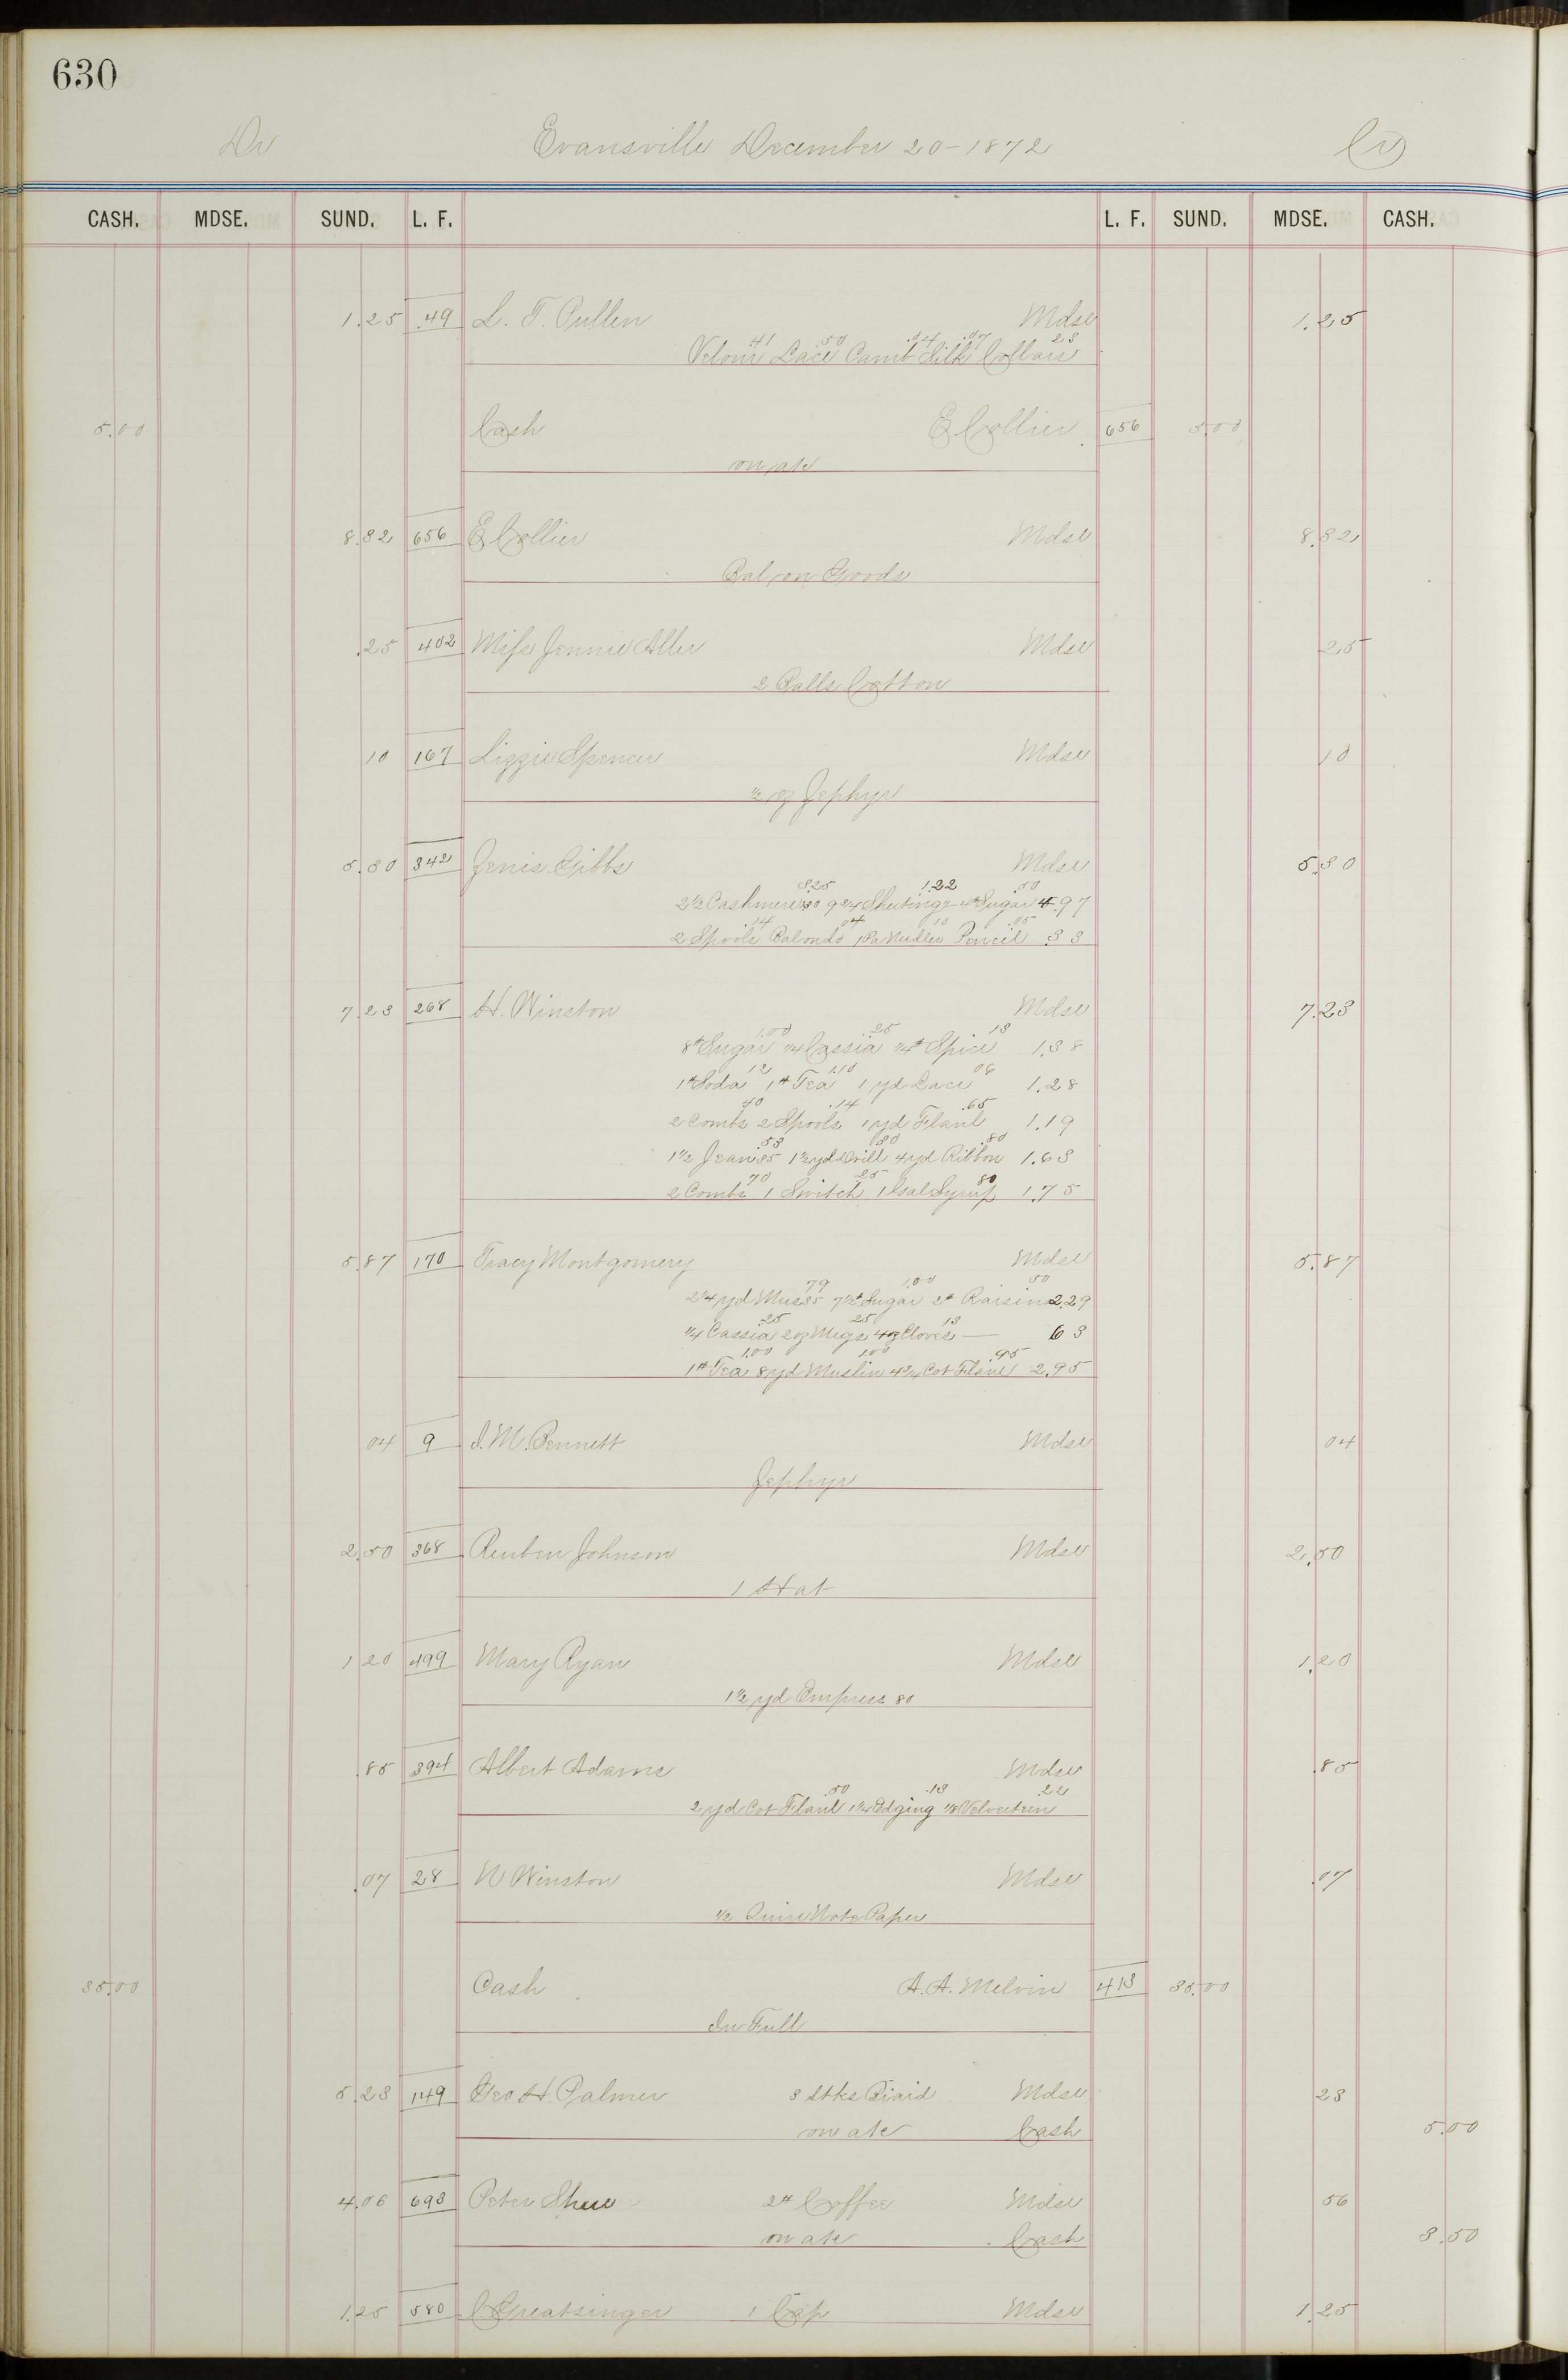 630
Dr Evansville December 20-1872 Cr
CASH. MDSE. SUND. L. F. L. F. SUND. MDSE. CASH.
1.25 49 L. T. Pullen Mdse 1.25
41 50 .04 .07 23
Velour Lace Camb Silk Collars
5.00 Cash E Collier 656 5.00
on a/c
8.82 656 E Collier Mdse 8.82
Bal on Goods
.25 402 Miss Jennie Aller Mdse 25
2 Balls Cotton
10 167 Lizzie Spencer Mdse 10
½ oz Zephyr
5.30 342 Jenis Gibbs Mdse 5.30
3.25 1.22 .50
2½ Cashmere 1.30 9¾ Sheeting 4# Sugar 4.97
.14 04 10 .05
2 Spools 1 Pa Needles Pencil .33
7.23 268 H. Winston Mdse 7.23
1.00 .25 13
8# Sugar ¼ Cassia ¼# Spice 1.38
12 1.10 06
1# Soda 1# Tea 1 yd Lace 1.28
40 .14 .65
2 Combs 2 Spools 1 yd Flanl 1.19
.53 30 .80
1½ Jean 35 1½ yd Drill 4 yd Ribbon 1.63
70 .25 80
2 Combs 1 Switch 1 Gal Syrup 1.75
5.87 170 Tracy Montgomery Mdse 5.87
79 1.00 50
2¼ yd Mus 35 7½# Sugar 2# Raisins 2.29
.25 25 13
¼ Cassia 2 oz Megs 4 oz Cloves — 63
1.00 1.00 95
1# Tea 8 yd Muslin 4¾ Cot Flanl 2.95
04 9 I. M. Bennett Mdse 04
Zephyr
2.50 368 Reuben Johnson Mdse 2.50
1 Hat
1 20 499 Mary Ryan Mdse 1.20
1½ yd Empress 80
.85 394 Albert Adams Mdse .85
.50 .13 22
2 yd Cot Flanl 1¼ Edging ⅛ Velveteen
.07 28 N Winston Mdse .07
½ Quire Note Paper
35.00 Cash A. A. Melvin 413 35.00
In Full
5.23 149 Geo H. Palmer 3 Stks Braid Mdse 23
on a/c Cash 5.00
4.06 693 Peter Shue 2# Coffee Mdse 56
on a/c Cash 3.50
1.25 580 C Greatsinger 1 Cap Mdse 1.25